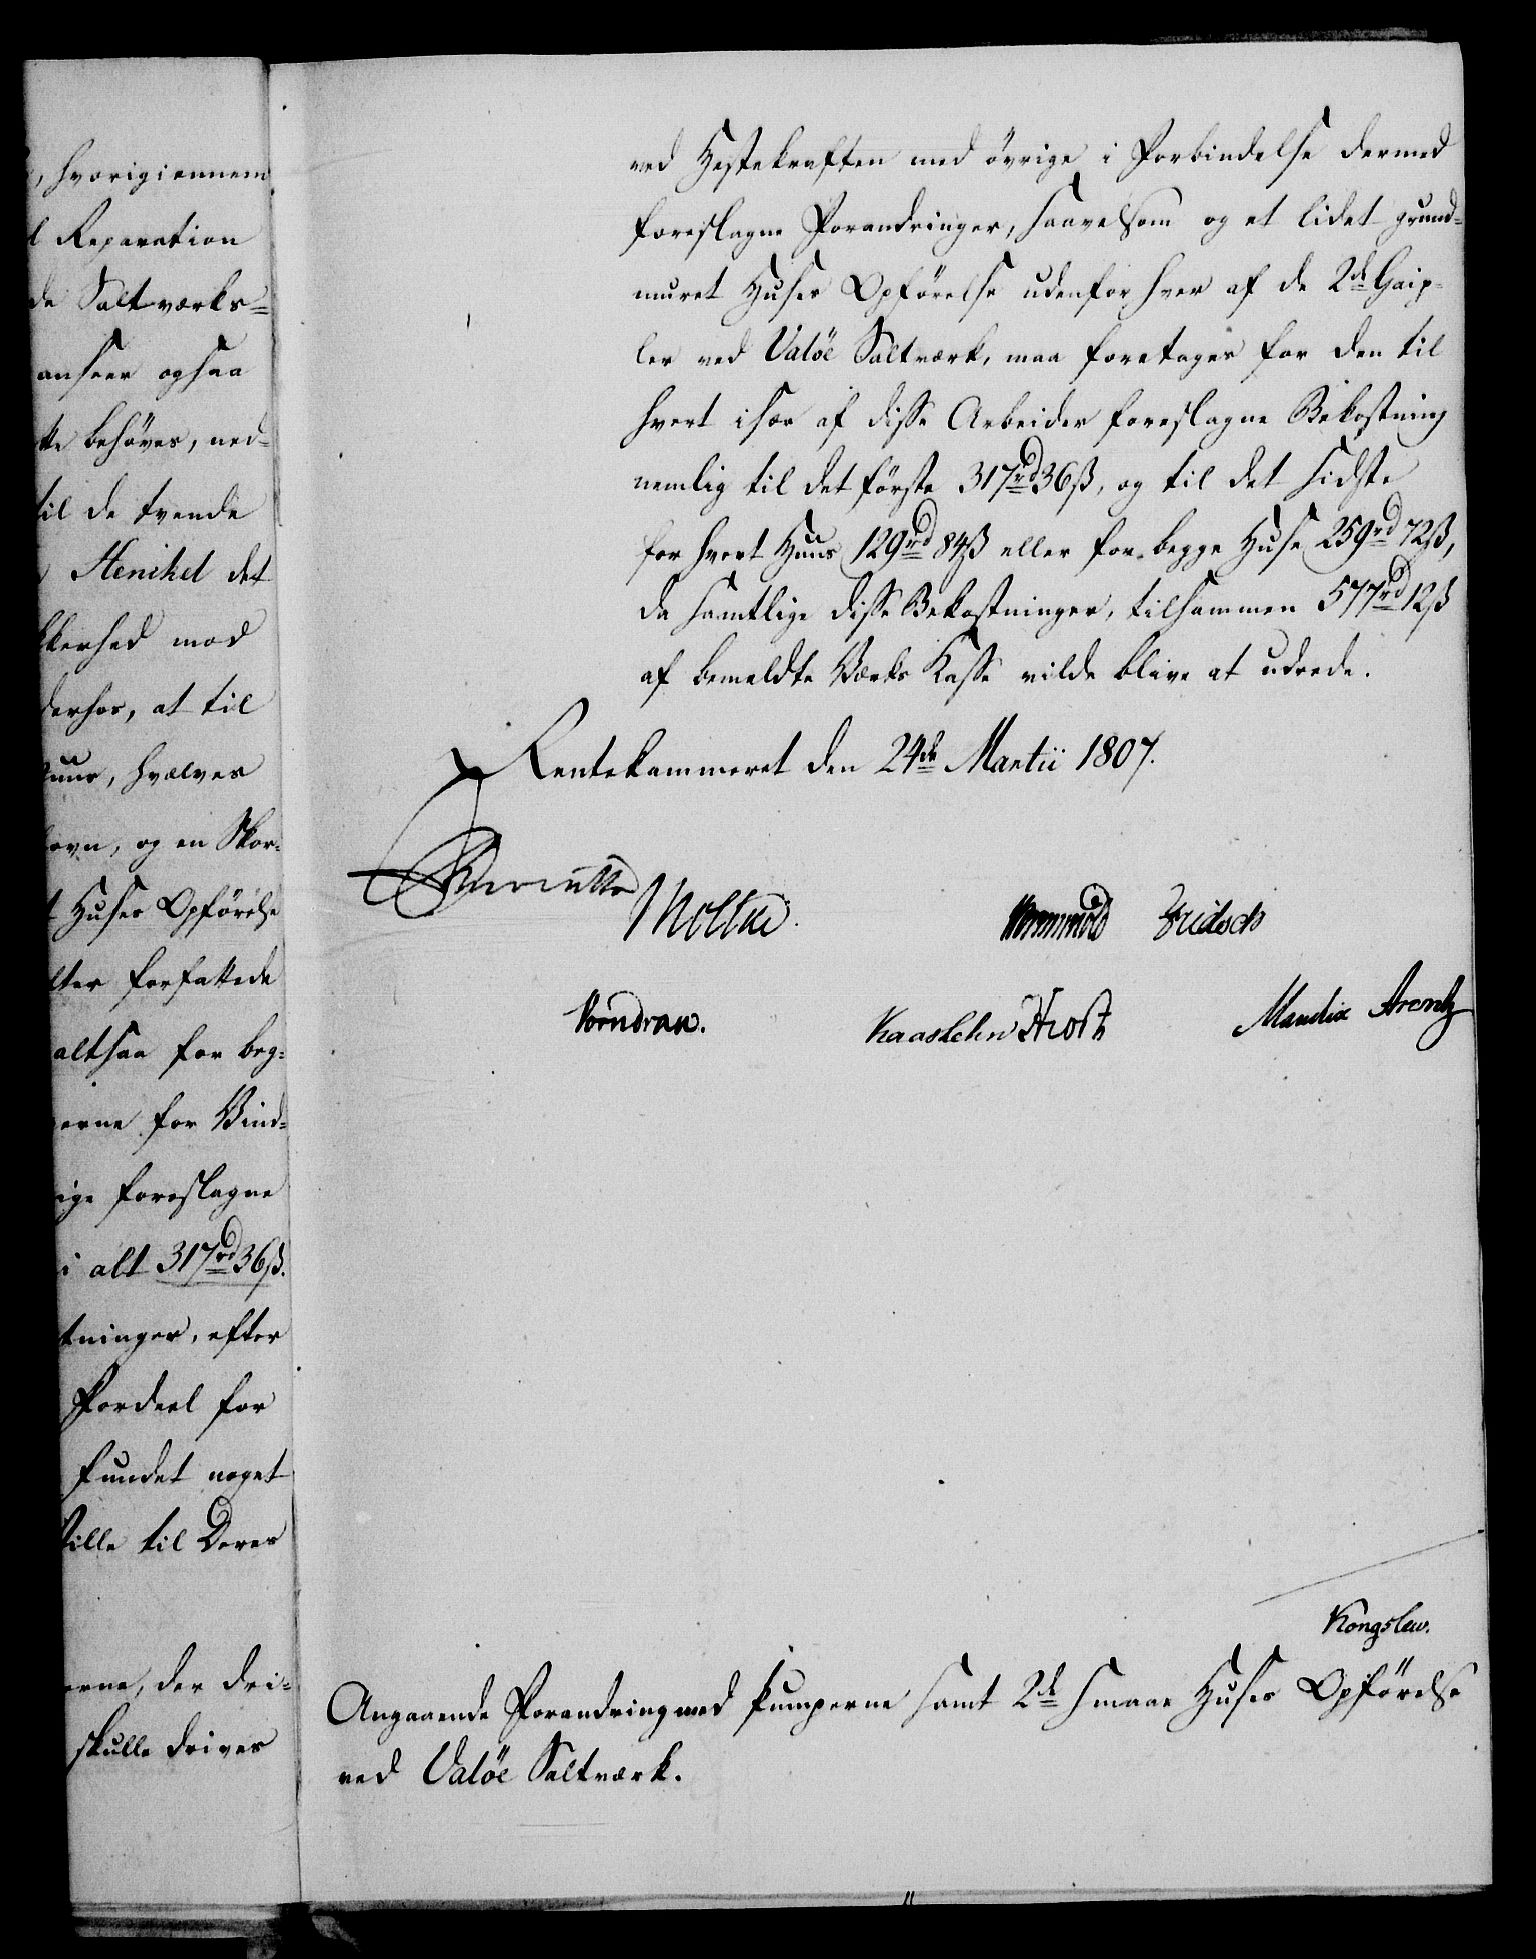 , hvorigiennem
l Reparation
de Saltværks-
anseer ogsaa
ke behöves, ned-
til de tvende
Henikel det
kkerhed mod
derhos, at til
Huus, hvælves
ovn, og en Skor-
t Huses Opförelse
lter forfattede
altsaa for beg-
erne for Vind-
ige foreslagne
i alt 317rd 36ß.
tninger, efter
Fordeel for
fundet noget
Ville til Deres
erne, der dri-
skulle drives
ved Hestekraften med övrige i Forbindelse dermed
foreslagne Forandringer, saavelsom og et lidet grund-
muret Huses Opförelse udenfor hver af de 2de Gaip-
ler ved Valöe Saltværk, maa foretages for den til
hvert især af disse Arbeider foreslagne Bekostning
nemlig til det förste 317rd 36ß, og til det sidste
for hvert Huus 129rd 84ß eller for begge Huse 259rd 72ß,
da samtlige disse Bekostninger, tilsammen 577rd 12ß
af bemeldte Værks Kasse vilde blive at udrede.
Rentekammeret den 24de Martii 1807.
Reventlow
Moltke.
Wormskiold Fridsch
Vorndran.
Kaasbchn Hiort
Mandix Arentz
Kongslew.
Angaaende Forandring med Pumperne samt 2de smaae Huses Opförelse
ved Valöe Saltværk.